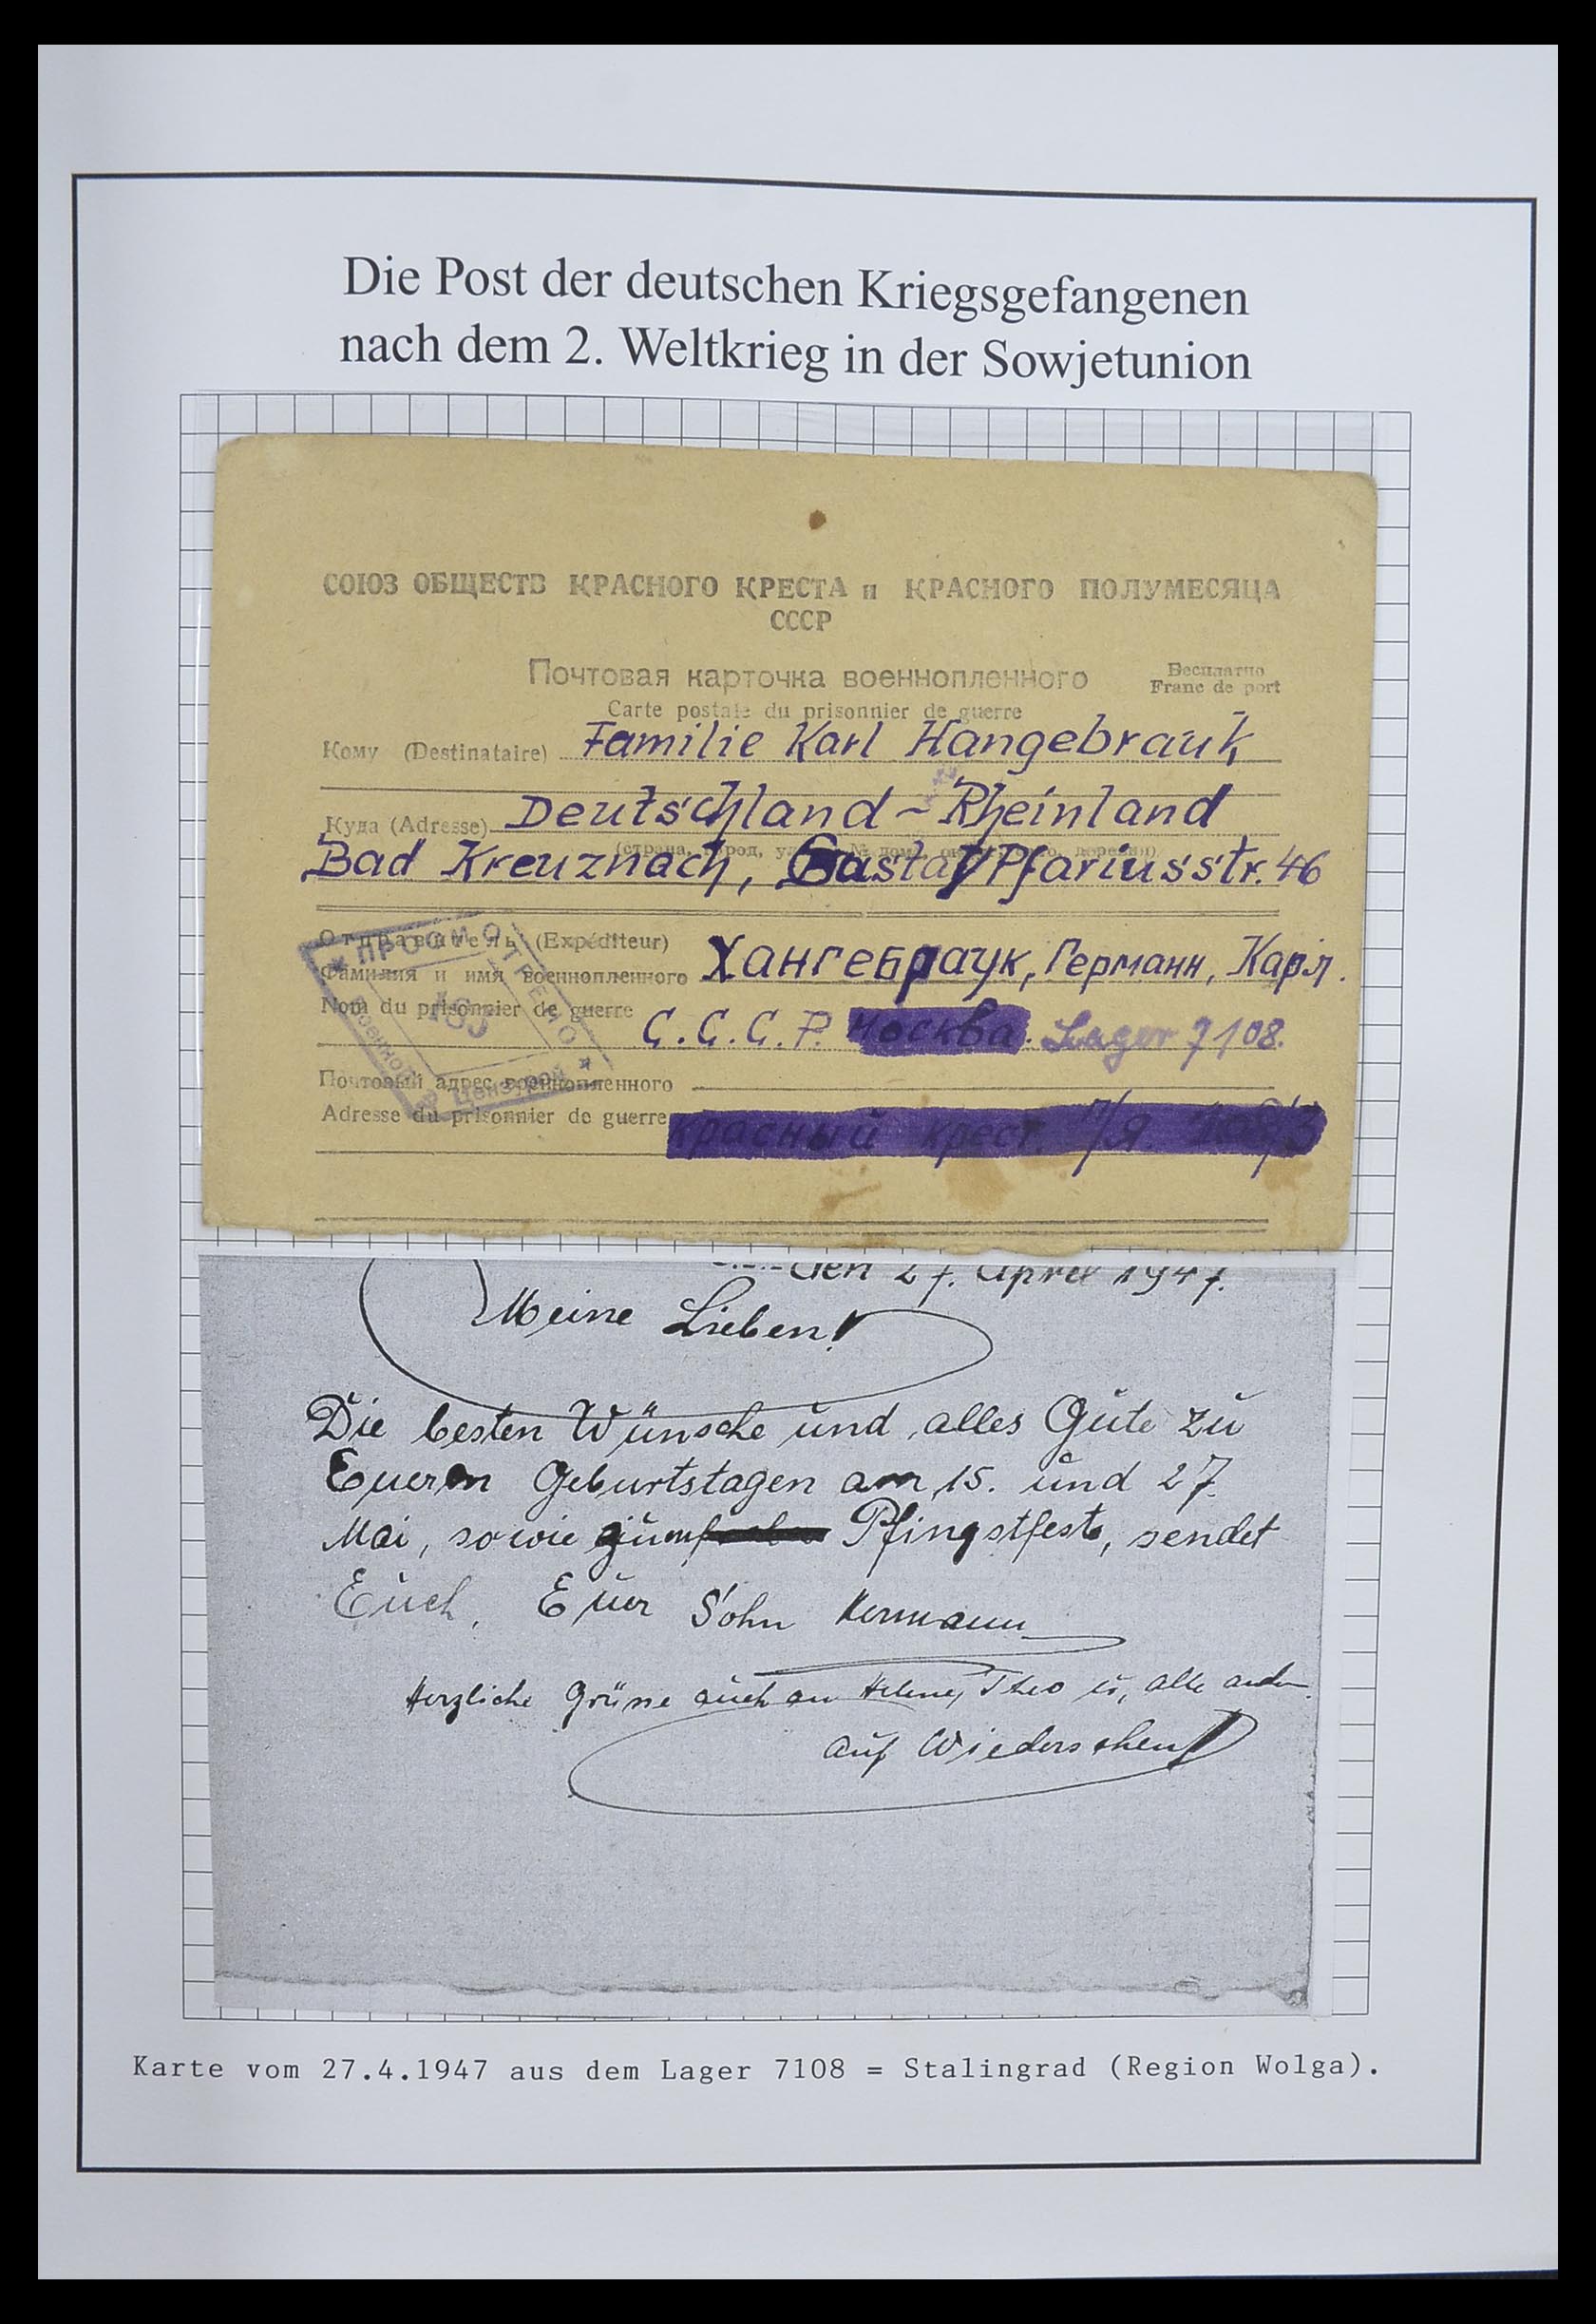 Die Post der deutschen Kriegsgefangenen
nach dem 2. Weltkrieg in der Sowjetunion
СОЮЗ ОБЩЕСТВ КРАСНОГО КРЕСТА и КРАСНОГО ПОЛУМЕСЯЦА
СССР
Почтовая карточка военнопленного
Бесплатно
Franc de port
Carte postale du prisonnier de guerre
Кому (Destinataire) Familie Karl Hangebrauk
Куда (Adresse) Deutschland - Rheinland
Bad Kreuznach, Gustav Pfariusstr. 46
Отправитель (Expéditeur)
Фамилия и имя военнопленного Хангебраук, Германн, Карл.
Nom du prisonnier de guerre
С.С.С.Р. Москва. Lager 7108.
Почтовый адрес военнопленного
Adresse du prisonnier de guerre Красный крест п/я
ПРОСМОТРЕНО
Военной Цензурой
den 27. April 1947.
Meine Lieben!
Die besten Wünsche und alles Gute zu
Euern Geburtstagen am 15. und 27.
Mai, sowie zum Pfingstfeste, sendet
Euch, Euer Sohn Hermann
Herzliche Grüsse auch an Helene, Theo u, alle andern.
auf Wiedersehen!
Karte vom 27.4.1947 aus dem Lager 7108 = Stalingrad (Region Wolga).